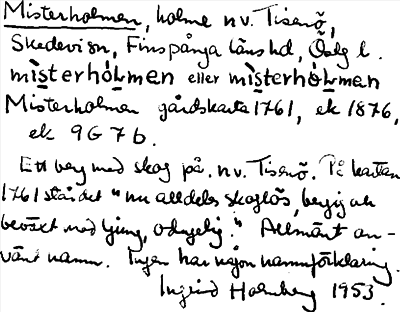 Misterholmen, holme n.v. Tisenö,
Skedevi sn, Finspånga läns hd, Östg l.
mìsterhòLmen eller mìsterhó̩Lmen
Misterholmen gårdskarta 1761, ek 1876,
ek 9G 7b.
Ett berg med skog på. n.v. Tisenö. På kartan
1761 står det "nu alldeles skoglös, bergig och
bevöxt med ljung, oduglig." Allmänt an-
vänt namn. Ingen har någon namnförklaring.
Ingrid Holmberg 1953.